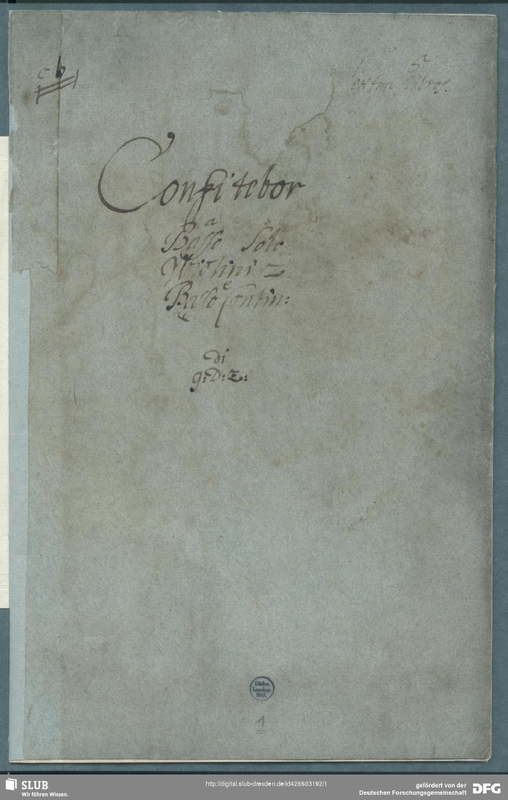 c b
extra libros.
Confitebor
a
Basso Solo
Violini 2
e
Basso Contin:
di
g: D: Z:
Sächs.
Landes-
Bibl.
1
SLUB
Wir führen Wissen.
http://digital.slub-dresden.de/id426803192/1
gefördert von der
Deutschen Forschungsgemeinschaft
DFG